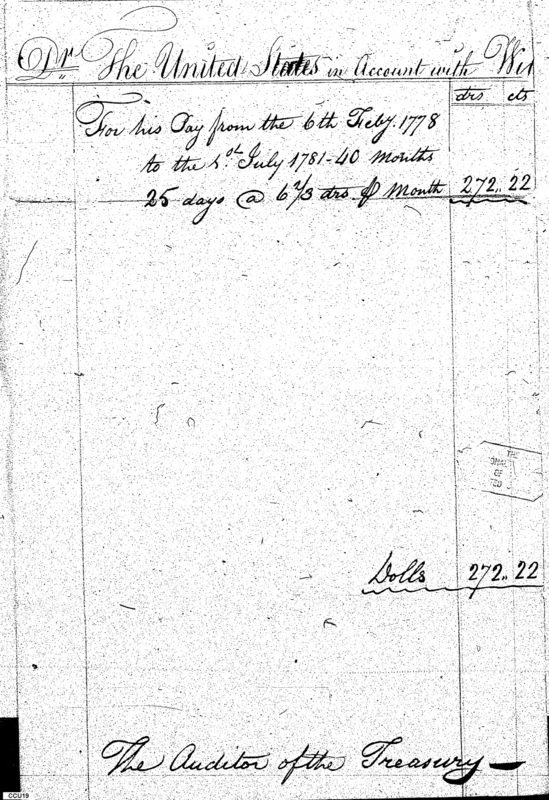 Dr The United States in Account with Wil
drs cts
For his Pay from the 6th Feby. 1778
to the 1st. July 1781 - 40 months
25 days @ 6 2/3 drs. P Month 272.. 22
THE
OF
Dolls 272.. 22
The Auditor of the Treasury
CCU19